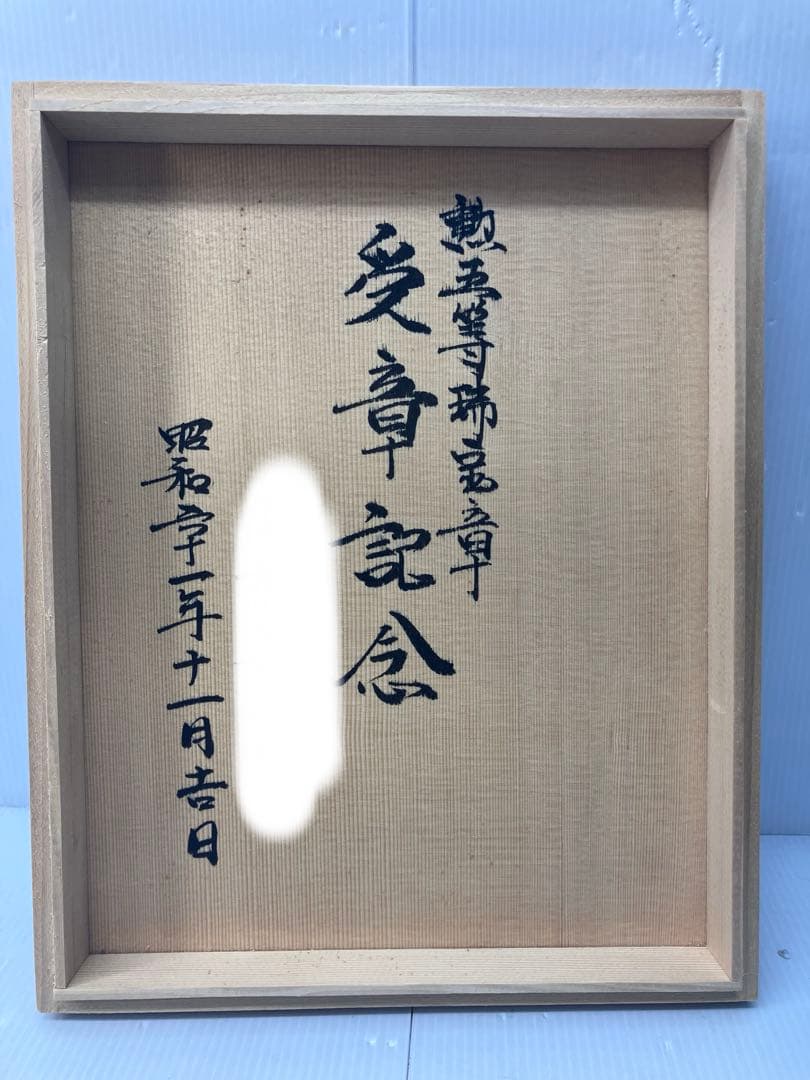 勲五等瑞宝章
受章記念
昭和十一年十一月吉日